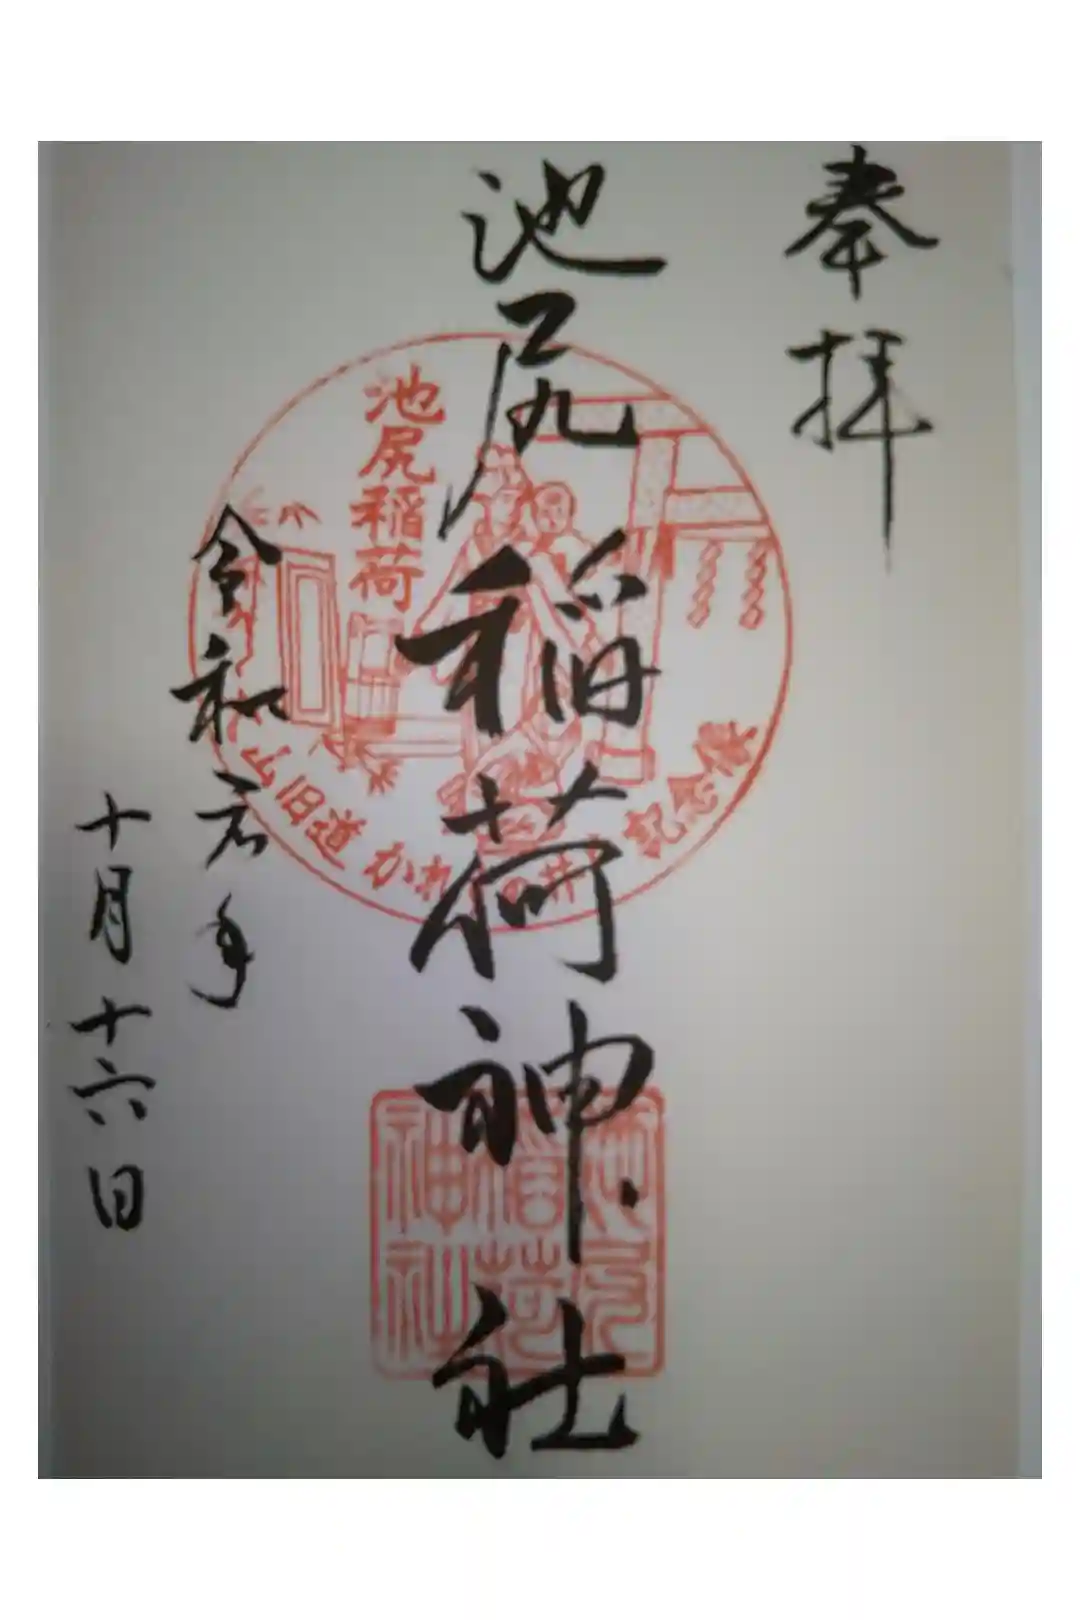 奉拝
池尻稲荷神社
池尻稲荷
山旧道 かれ の井 記念
池尻
稲荷
神社
令和元年
十月十六日